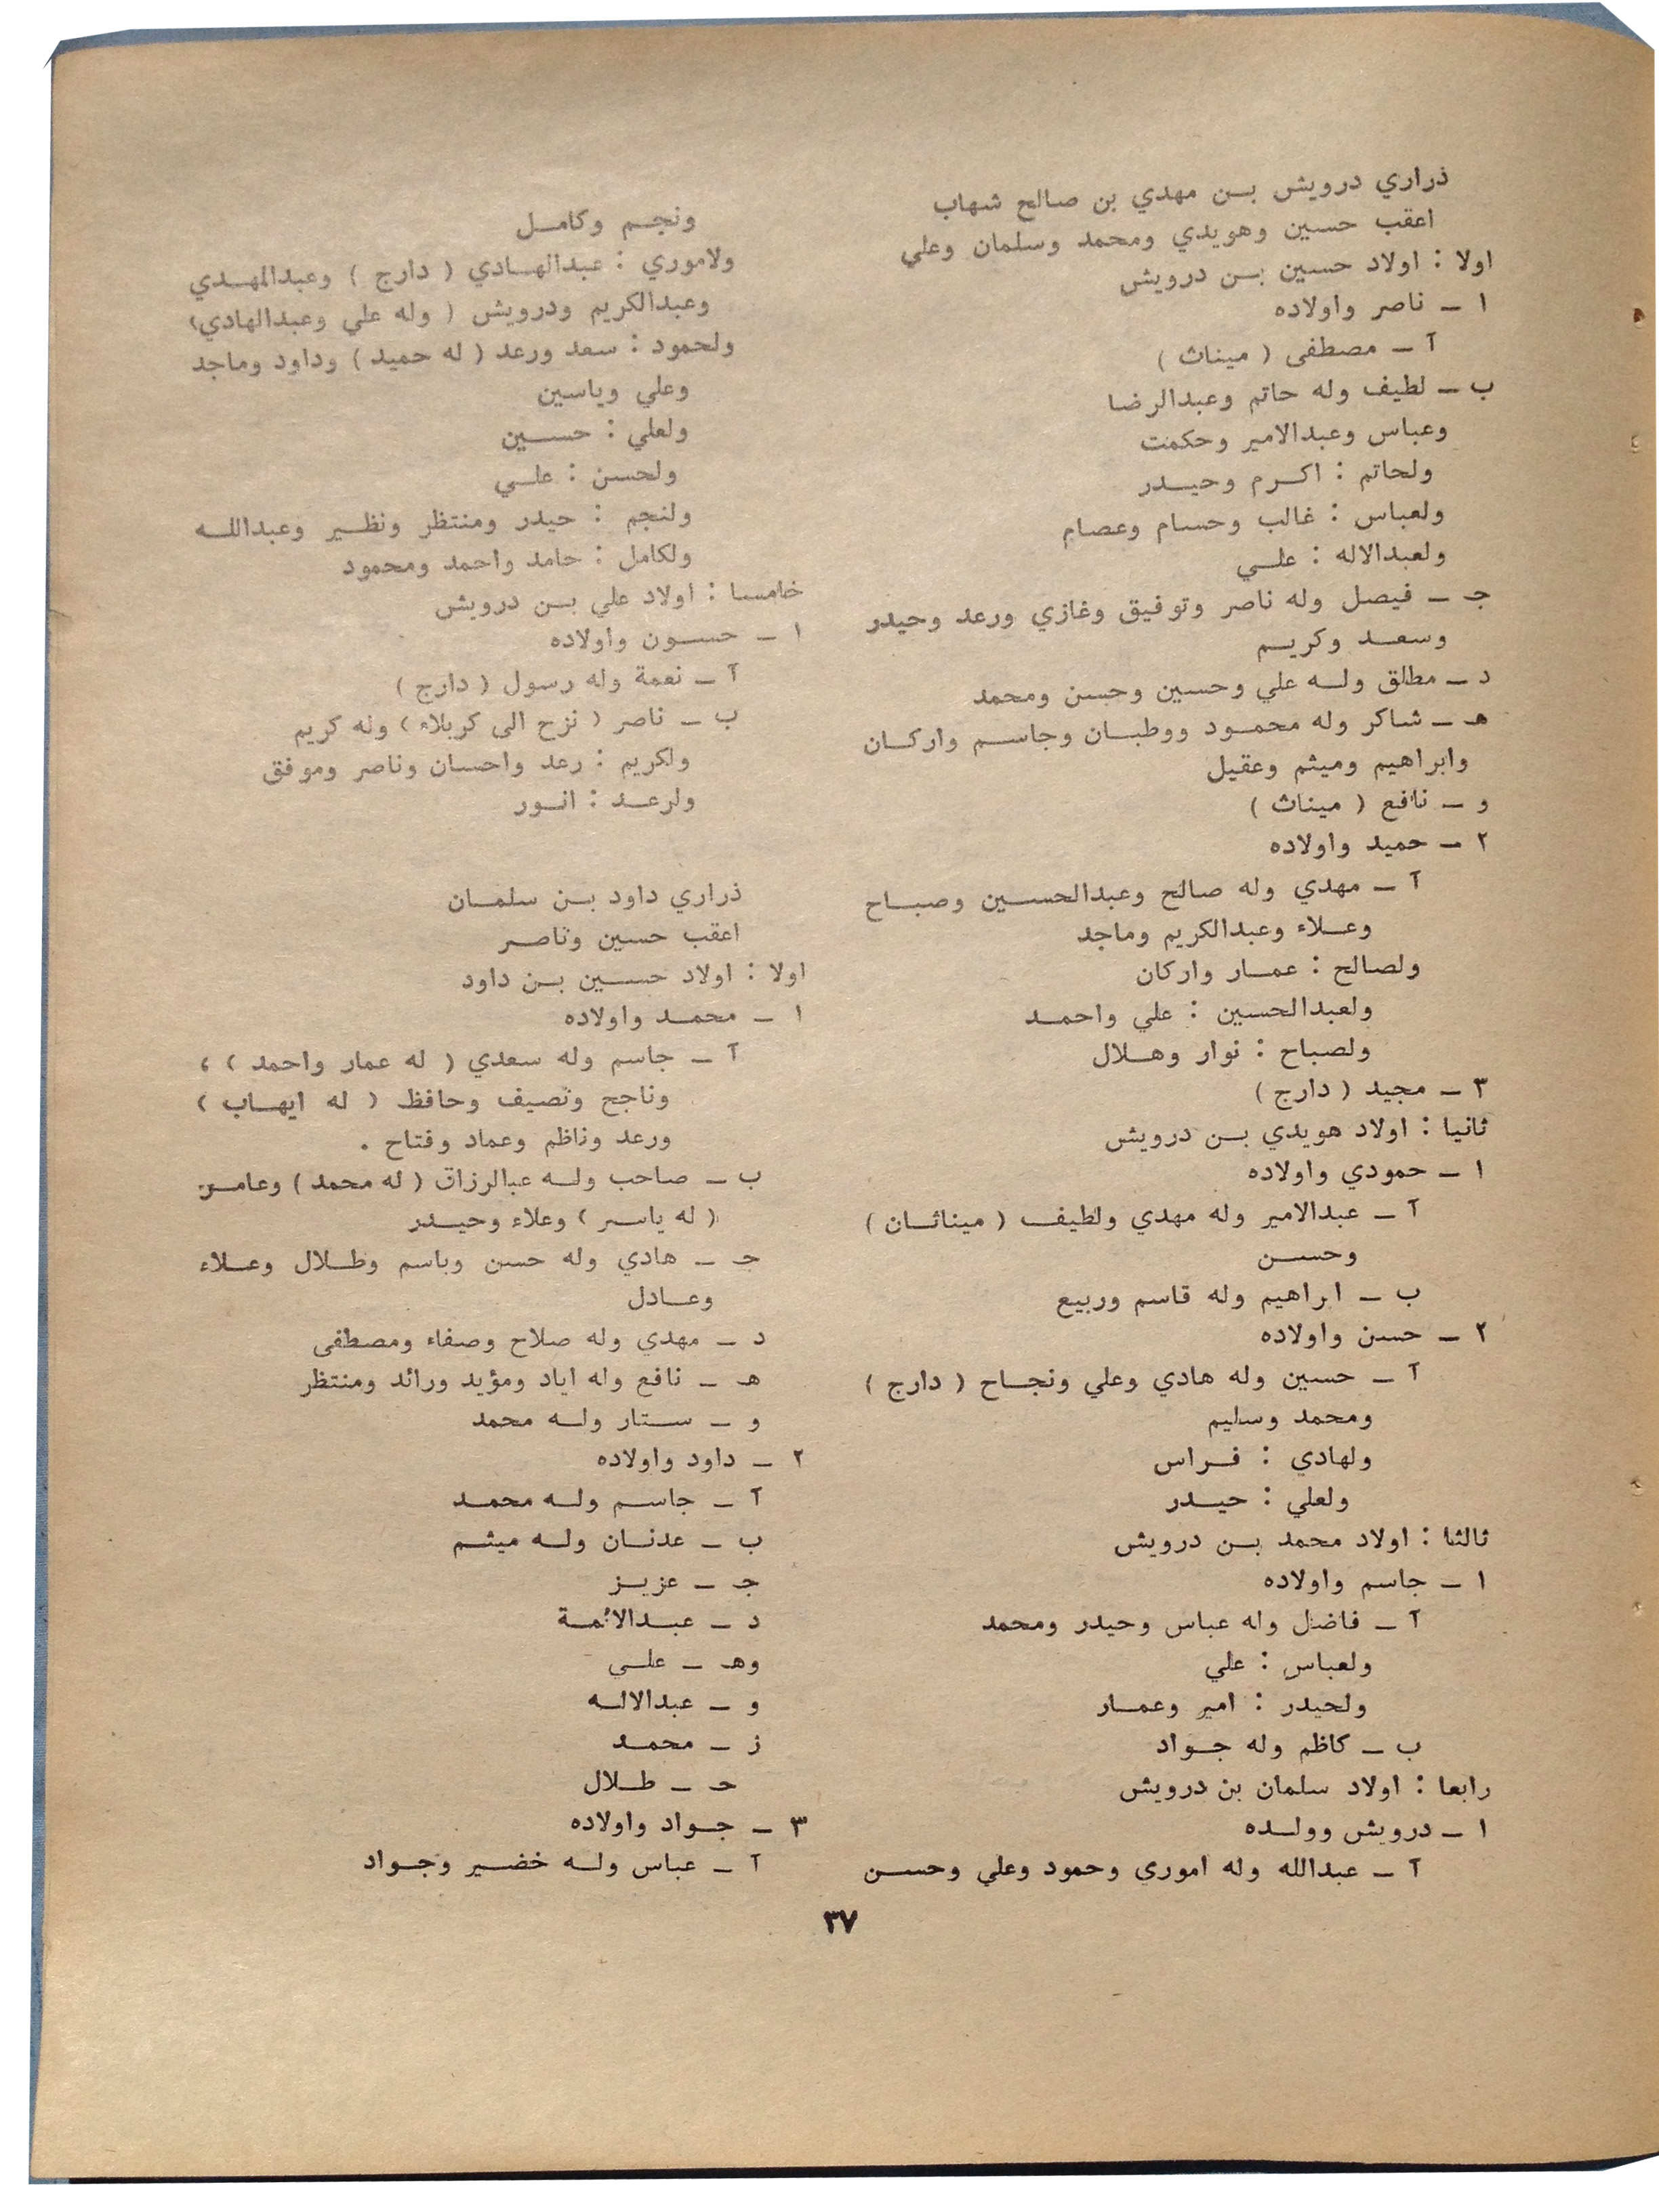 ذراري درويش بـن مهدي بن صالح شهاب
اعقب حسين وهويدي ومحمد وسلمان وعلي
اولا : اولاد حسين بـن درويش
١ ـ ناصر واولاده
آ ـ مصطفى ( ميناث )
ب ـ لطيف وله حاتم وعبدالرضا
وعباس وعبدالامير وحكمت
ولحاتم : اكـرم وحيـدر
ولعباس : غالب وحسام وعصام
ولعبدالاله : علـي
جـ ـ فيصل وله ناصر وتوفيق وغازي ورعد وحيدر
وسعـد وكريـم
د ـ مطلق ولـه علي وحسين وحسن ومحمد
هـ ـ شاكر وله محمـود ووطبـان وجاسـم واركـان
وابراهيم وميثم وعقيل
و ـ نافع ( ميناث )
٢ ـ حميد واولاده
آ ـ مهدي وله صالح وعبدالحسـين وصبـاح
وعـلاء وعبدالكريم وماجد
ولصالح : عمـار واركان
ولعبدالحسين : علي واحمـد
ولصباح : نوار وهـلال
٣ ـ مجيد ( دارج )
ثانيا : اولاد هويدي بـن درويش
١ ـ حمودي واولاده
آ ـ عبدالامير وله مهدي ولطيف ( ميناثـان )
وحسـن
ب ـ ابراهيم وله قاسم وربيع
٢ ـ حسن واولاده
آ ـ حسين وله هادي وعلي ونجـاح ( دارج )
ومحمد وسليم
ولهادي : فـراس
ولعلي : حيـدر
ثالثا : اولاد محمد بـن درويش
١ ـ جاسم واولاده
آ ـ فاضل وله عباس وحيدر ومحمد
ولعباس : علي
ولحيدر : امير وعمـار
ب ـ كاظم وله جـواد
رابعا : اولاد سلمان بن درويش
١ ـ درويش وولـده
آ ـ عبدالله وله اموري وحمود وعلي وحسـن
ونجـم وكامـل
ولاموري : عبدالهـادي ( دارج ) وعبدالمهـدي
وعبدالكريم ودرويش ( وله علي وعبدالهادي)
ولحمود : سعد ورعد ( له حميد ) وداود وماجد
وعلي وياسين
ولعلي : حسـين
ولحسن : علـي
ولنجم : حيدر ومنتظر ونظـير وعبداللـه
ولكامل : حامد واحمد ومحمود
خامسا : اولاد علي بـن درويش
١ ـ حسـون واولاده
آ ـ نعمة وله رسول ( دارج )
ب ـ ناصر ( نزح الى كربلاء ) وله كريم
ولكريم : رعد واحسان وناصر وموفق
ولرعـد : انـور
ذراري داود بـن سلمـان
اعقب حسين وناصـر
اولا : اولاد حسـين بـن داود
١ ـ محمـد واولاده
آ ـ جاسم وله سعدي ( له عمار واحمد ) ،
وناجح ونصيف وحافظ ( له ايهـاب )
ورعد وناظم وعماد وفتاح .
ب ـ صاحب ولـه عبالرزاق ( له محمد ) وعامـر
( له ياسـر ) وعلاء وحيـدر
جـ ـ هادي وله حسن وباسم وطـلال وعـلاء
وعـادل
د ـ مهدي وله صلاح وصفاء ومصطفى
هـ ـ نافع وله اياد ومؤيد ورائد ومنتظر
و ـ سـتار ولـه محمد
٢ ـ داود واولاده
آ ـ جاسـم ولـه محمـد
ب ـ عدنـان ولـه ميثـم
جـ ـ عزيـز
د ـ عبـدالائمـة
وهـ ـ علـي
و ـ عبدالالـه
ز ـ محمـد
حـ ـ طـلال
٣ ـ جـواد واولاده
آ ـ عباس ولـه خضـير وجـواد
٣٧